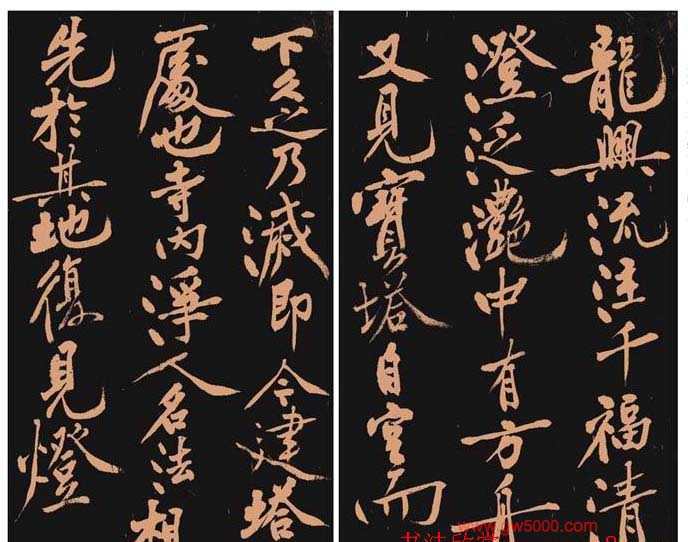 龍興流注千福清
澄泛灩中有方舟
又見寶塔自空而
下久之乃滅即今建塔
處也寺內淨人名法相
先於其地復見燈
书法欣赏